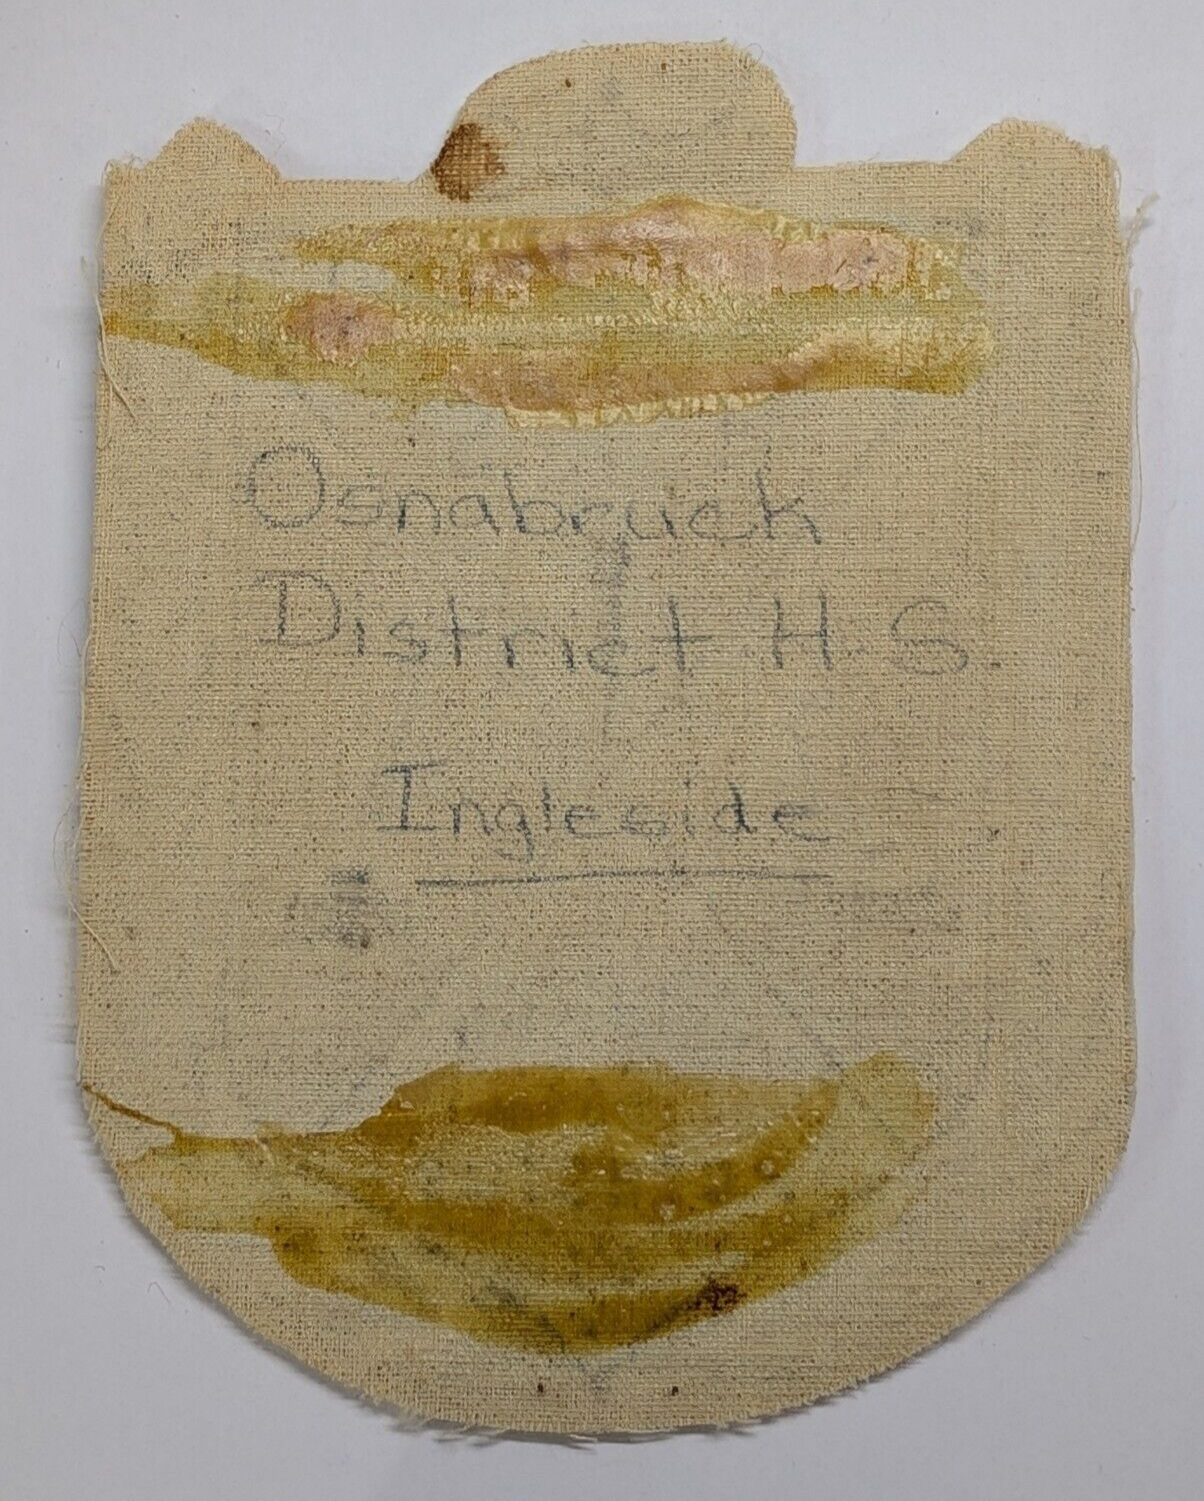 Osnabruck
District H.S
Ingleside